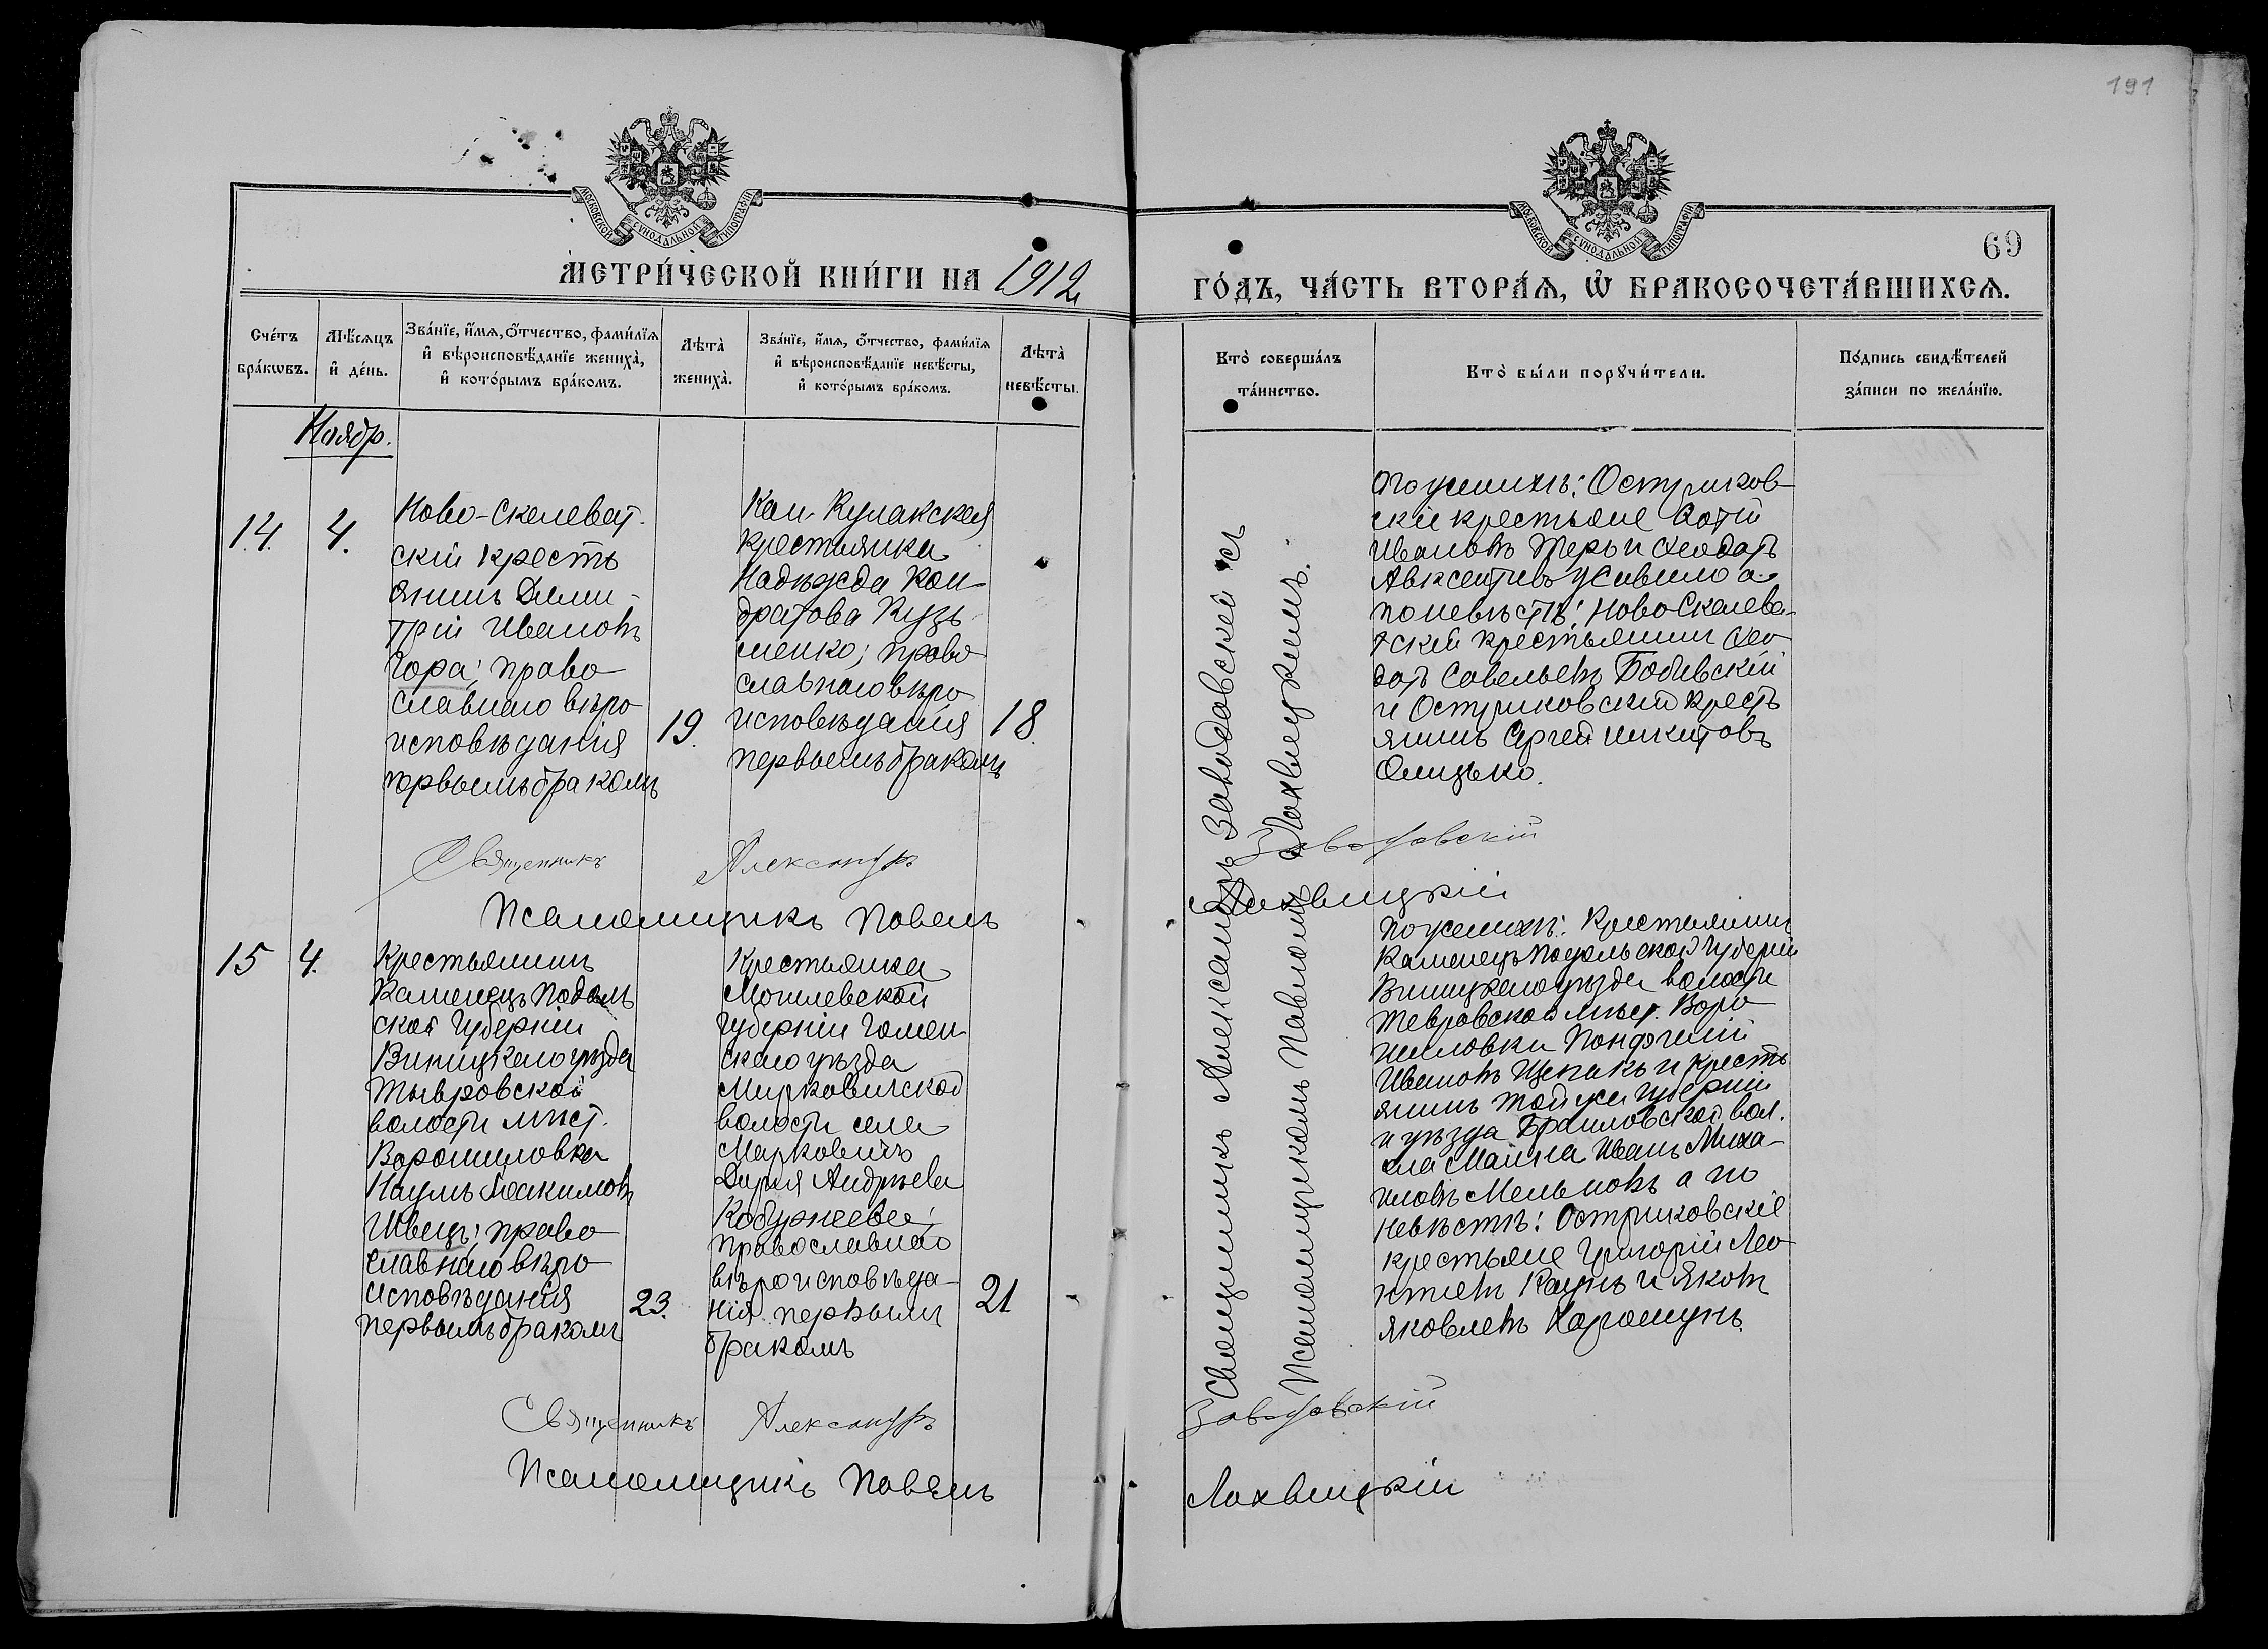 191
МОСКОВСКОЙ СѴНОДАЛЬНОЙ ТИПОГРАФІИ
МЕТРИ́ЧЕСКОЙ КНИ́ГИ НА 1912
Сче́тъ бра́кѡвъ.
Мѣ́сяцъ и҆ де́нь.
Зва́нїе, и҆́мѧ, ѻ҆́тчество, фами́лїѧ и҆ вѣроисповѣ́данїе жениха̀, и҆ кото́рымъ бра́комъ.
Лѣта̀ жениха̀.
Зва́нїе, и҆́мѧ, ѻ҆́тчество, фами́лїѧ и҆ вѣроисповѣ́данїе невѣ́сты, и҆ кото́рымъ бра́комъ.
Лѣта̀ невѣ́сты.
МОСКОВСКОЙ СѴНОДАЛЬНОЙ ТИПОГРАФІИ
69
ГО́ДЪ, ЧА́СТЬ ВТОРА́Ѧ, Ѡ҆ БРАКОСОЧЕТА́ВШИХСѦ.
Кто̀ соверша́лъ та́инство.
Кто̀ бы́ли порꙋчи́тели.
По́дпись свидѣ́телей за́писи по жела́нїю.
Ноябр.
14.
4.
Ново-Скелеват-
скій кресть
янинъ Дими-
трій Ивановъ
Гора; право
славнаго вѣро
исповѣданія
первымъ бракомъ
19.
Кам. Кулакская
крестьянка
Надѣжда Кон
дратова Кузь
менко; право
славнаго вѣро
исповѣданія
первымъ бракомъ
18.
Священникъ Александръ Заводовскій съ
Псаломщикомъ Павломъ Лохвицкимъ.
По женихѣ: Остриков-
скіе крестьяне
Ивановъ и Феодотъ
Авксентіевъ а
по невѣстѣ: Ново Скелева-
тскій крестьянинъ Фео
дотъ Савельевъ
и Остриковскій кресть
янинъ Сергей Никитовъ
Онищько.
Священникъ Александръ Заводовскій
Псаломщикъ Павелъ Лохвицкій
15
4.
Крестьянинъ
Каменецъ Подоль
ской Губерніи
Виницкаго уѣзда
Тывровской
волости мѣст.
Ворошиловка
Наумъ Іоакимовъ
Швецъ; право
славнаго вѣро
исповѣданія
первымъ бракомъ
23.
Крестьянка
Могилевской
губерніи Гомел
скаго уѣзда
Марковичской
волости села
Марковичъ
Дарія Андрѣева
православнаго
вѣроисповѣда-
нія первымъ
бракомъ
21
По женихѣ: Крестьянинъ
Каменецъ Подольской Губерніи
Виницкаго уѣзда волости
Тевровской мѣст. Воро
шиловки
Ивановъ Щепакъ и кресть
янинъ той же губерніи
и уѣзда Браиловской вол.
села Маина Иванъ Миха-
иловъ Мельникъ а по
невѣстѣ: Остриковскіе
крестьяне Григорій Лео
нтіевъ Каунъ и Яковъ
Яковлевъ
Священникъ Александръ Заводовскій
Псаломщикъ Павелъ Лохвицкій